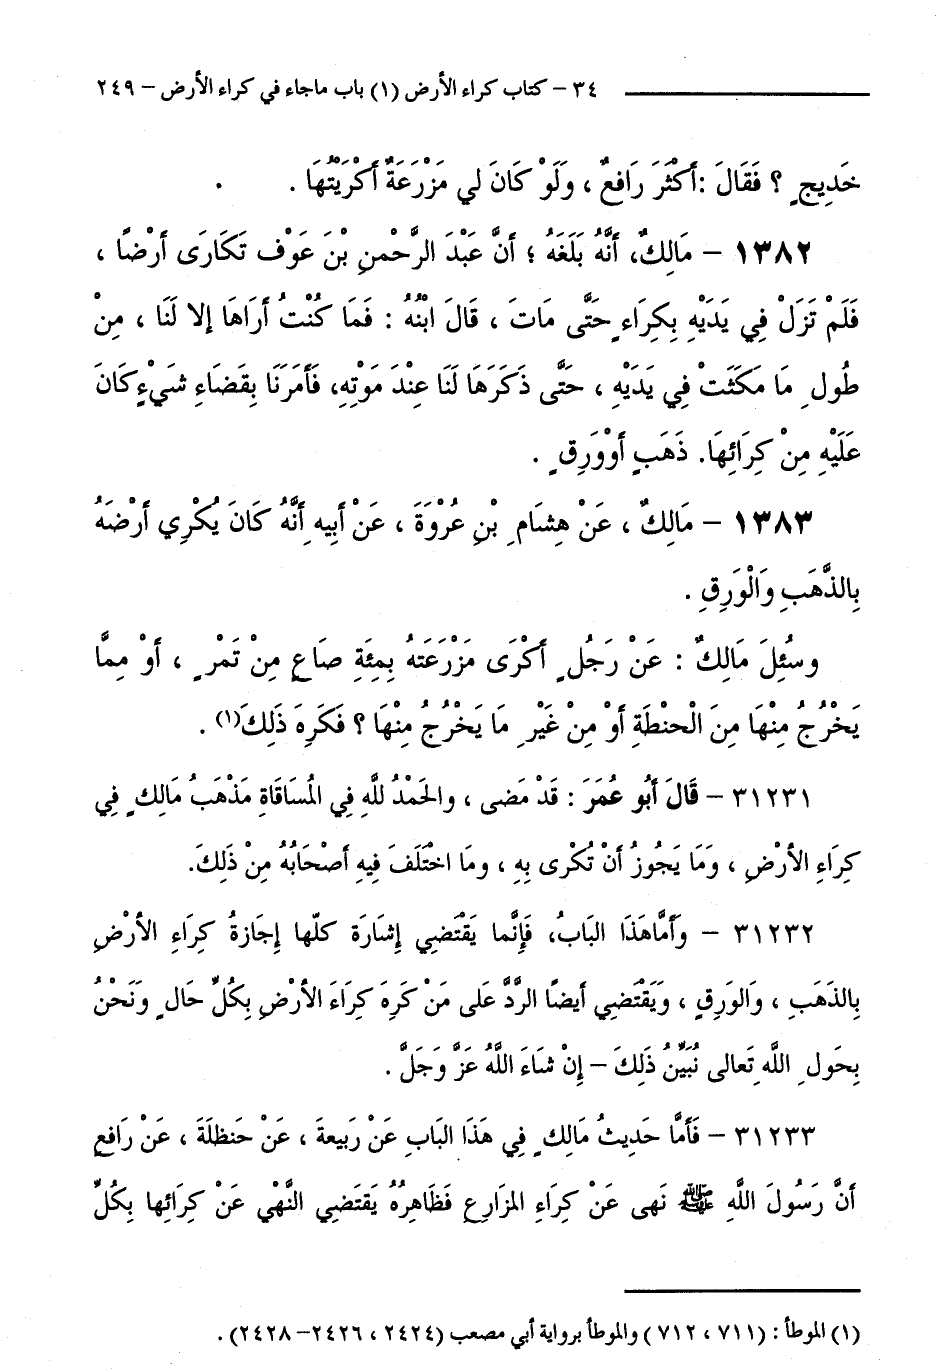 ٣٤ – كتاب كراء الأرض (١) باب ماجاء في كراء الأرض – ٢٤٩
خَدِيجٍ ؟ فَقَالَ :أَكْثَرَ رَافِعٌ ، وَلَوْ كَانَ لي مَزْرَعَةٌ أَكْرَيْتُهَا .
١٣٨٢ – مَالِكٌ، أَنَّهُ بَلَغَهُ ؛ أَنَّ عَبْدَ الرَّحْمنِ بْنَ عَوْف تَكَارَى أَرْضًا ،
فَلَمْ تَزَلْ فِي يَدَيْهِ بِكِرَاءٍ حَتَّى مَاتَ ، قَالَ ابْنُهُ : فَمَا كُنْتُ أَرَاهَا إلا لَنَا ، مِنْ
طُولِ مَا مَكَثَتْ فِي يَدَيْهِ ، حَتَّى ذَكَرَهَا لَنَا عِنْدَ مَوْتِهِ، فَأَمَرَنَا بِقَضَاءِ شَيْءٍ كَانَ
عَلَيْهِ مِنْ كِرَائِهَا. ذَهَبٍ أَوْوَرِقٍ .
١٣٨٣ – مَالِكٌ ، عَنْ هِشَامِ بْنِ عُرْوَةَ ، عَنْ أَبيهِ أَنَّهُ كَانَ يُكْرِي أَرْضَهُ
بِالذَّهَبِ وَالْوَرِقِ .
وسُئِلَ مَالِكٌ : عَنْ رَجُلٍ أَكْرَى مَزْرَعَتَهُ بِمِئَةِ صَاعِ مِنْ تَمْرٍ ، أَوْ مِمَّا
يَخْرُجُ مِنْهَا مِنَ الْحنْطَةِ أَوْ مِنْ غَيْرِ مَا يَخْرُجُ مِنْهَا ؟ فَكَرِهَ ذَلِكَ(١) .
٣١٢٣١ – قَالَ أَبُو عُمَرَ : قَدْ مَضى ، والحَمْدُ للَّهِ فِي المُسَاقَاةِ مَذْهَبُ مَالِكٍ فِي
كِرَاءِ الأَرْضِ ، وَمَا يَجُوزُ أَنْ تُكْرى بِهِ ، ومَا اخْتَلَفَ فِيهِ أَصْحَابُهُ مِنْ ذَلِكَ.
٣١٢٣٢ – وَأَمَّاهَذَا البَابُ، فَإِنَّما يَقْتَضِي إِشَارَة كلّها إِجَازةُ كِرَاءِ الأرْضِ
بِالذَهَبِ ، وَالوَرِقِ ، وَيَقْتَضِي أيضًا الرَّدَّ عَلى مَنْ كَرِهَ كِرَاءَ الأَرْضِ بِكُلِّ حَالٍ وَنَحْنُ
بِحَولِ اللَّهِ تَعالى نُبَيِّنُ ذَلِكَ – إِنْ شَاءَ اللَّهُ عَزَّ وَجَلَّ .
٣١٢٣٣ – فَأَمَّا حَدِيثُ مَالِكٍ فِي هَذَا البَابِ عَنْ رَبِيعةَ ، عَنْ حَنظلَةَ ، عَنْ رَافِعِ
أَنَّ رَسُولَ اللَّهِ ﷺ نَهى عَنْ كِرَاءِ المزارِعِ فَظَاهِرُهُ يَقتَضِي النَّهْي عَنْ كِرَائِها بِكُلِّ
(١) الموطأ : (٧١١ ، ٧١٢) والموطأ برواية أبي مصعب (٢٤٢٤ ، ٢٤٢٦– ٢٤٢٨) .